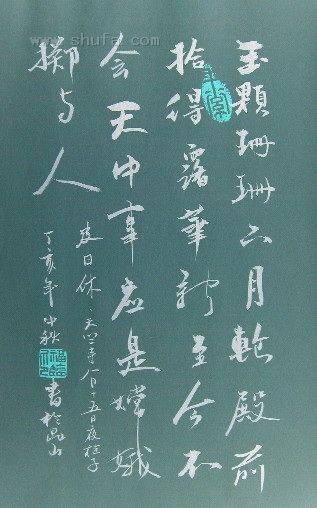 www.shufa.com
玉顆珊珊下月輪殿前
拾得露華新至今不
会天中事应是嫦娥
擲与人
皮日休·天竺寺八月十五日夜桂子
丁亥年中秋書於
山